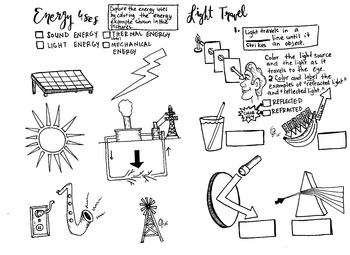 Energy Uses
Explore the energy uses
by coloring the energy
example shown in the
pictures.
SOUND ENERGY
THERMAL ENERGY
LIGHT ENERGY
MECHANICAL
ENERGY
Light Travel
1.
Light travels in a
line until it
strikes an object.
Color the light source
and the light as it
travels to the eye.
2 Color and label the
examples of "refracted light"
and "reflected light."
REFLECTED
REFRACTED